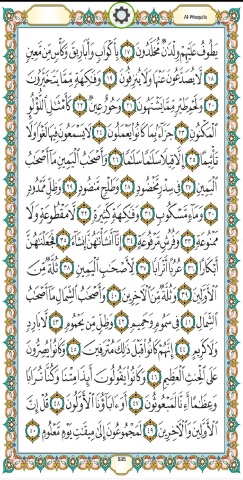 Al-Waqi'a
يَطُوفُ عَلَيْهِمْ وِلْدَٰنٌ مُّخَلَّدُونَ ١٧ بِأَكْوَابٍ وَأَبَارِيقَ وَكَأْسٍ مِّن مَّعِينٍ
١٨ لَّا يُصَدَّعُونَ عَنْهَا وَلَا يُنزِفُونَ ١٩ وَفَٰكِهَةٍ مِّمَّا يَتَخَيَّرُونَ
٢٠ وَلَحْمِ طَيْرٍ مِّمَّا يَشْتَهُونَ ٢١ وَحُورٌ عِينٌ ٢٢ كَأَمْثَٰلِ ٱللُّؤْلُؤِ
ٱلْمَكْنُونِ ٢٣ جَزَآءًۢ بِمَا كَانُوا۟ يَعْمَلُونَ ٢٤ لَا يَسْمَعُونَ فِيهَا لَغْوًا وَلَا
تَأْثِيمًا ٢٥ إِلَّا قِيلًا سَلَٰمًا سَلَٰمًا ٢٦ وَأَصْحَٰبُ ٱلْيَمِينِ مَآ أَصْحَٰبُ
ٱلْيَمِينِ ٢٧ فِى سِدْرٍ مَّخْضُودٍ ٢٨ وَطَلْحٍ مَّنضُودٍ ٢٩ وَظِلٍّ مَّمْدُودٍ
٣٠ وَمَآءٍ مَّسْكُوبٍ ٣١ وَفَٰكِهَةٍ كَثِيرَةٍ ٣٢ لَّا مَقْطُوعَةٍ وَلَا
مَمْنُوعَةٍ ٣٣ وَفُرُشٍ مَّرْفُوعَةٍ ٣٤ إِنَّآ أَنشَأْنَٰهُنَّ إِنشَآءً ٣٥ فَجَعَلْنَٰهُنَّ
أَبْكَارًا ٣٦ عُرُبًا أَتْرَابًا ٣٧ لِّأَصْحَٰبِ ٱلْيَمِينِ ٣٨ ثُلَّةٌ مِّنَ
ٱلْأَوَّلِينَ ٣٩ وَثُلَّةٌ مِّنَ ٱلْءَاخِرِينَ ٤٠ وَأَصْحَٰبُ ٱلشِّمَالِ مَآ أَصْحَٰبُ
ٱلشِّمَالِ ٤١ فِى سَمُومٍ وَحَمِيمٍ ٤٢ وَظِلٍّ مِّن يَحْمُومٍ ٤٣ لَّا بَارِدٍ
وَلَا كَرِيمٍ ٤٤ إِنَّهُمْ كَانُوا۟ قَبْلَ ذَٰلِكَ مُتْرَفِينَ ٤٥ وَكَانُوا۟ يُصِرُّونَ
عَلَى ٱلْحِنثِ ٱلْعَظِيمِ ٤٦ وَكَانُوا۟ يَقُولُونَ أَئِذَا مِتْنَا وَكُنَّا تُرَابًا
وَعِظَٰمًا أَءِنَّا لَمَبْعُوثُونَ ٤٧ أَوَءَابَآؤُنَا ٱلْأَوَّلُونَ ٤٨ قُلْ إِنَّ
ٱلْأَوَّلِينَ وَٱلْءَاخِرِينَ ٤٩ لَمَجْمُوعُونَ إِلَىٰ مِيقَٰتِ يَوْمٍ مَّعْلُومٍ ٥٠
535